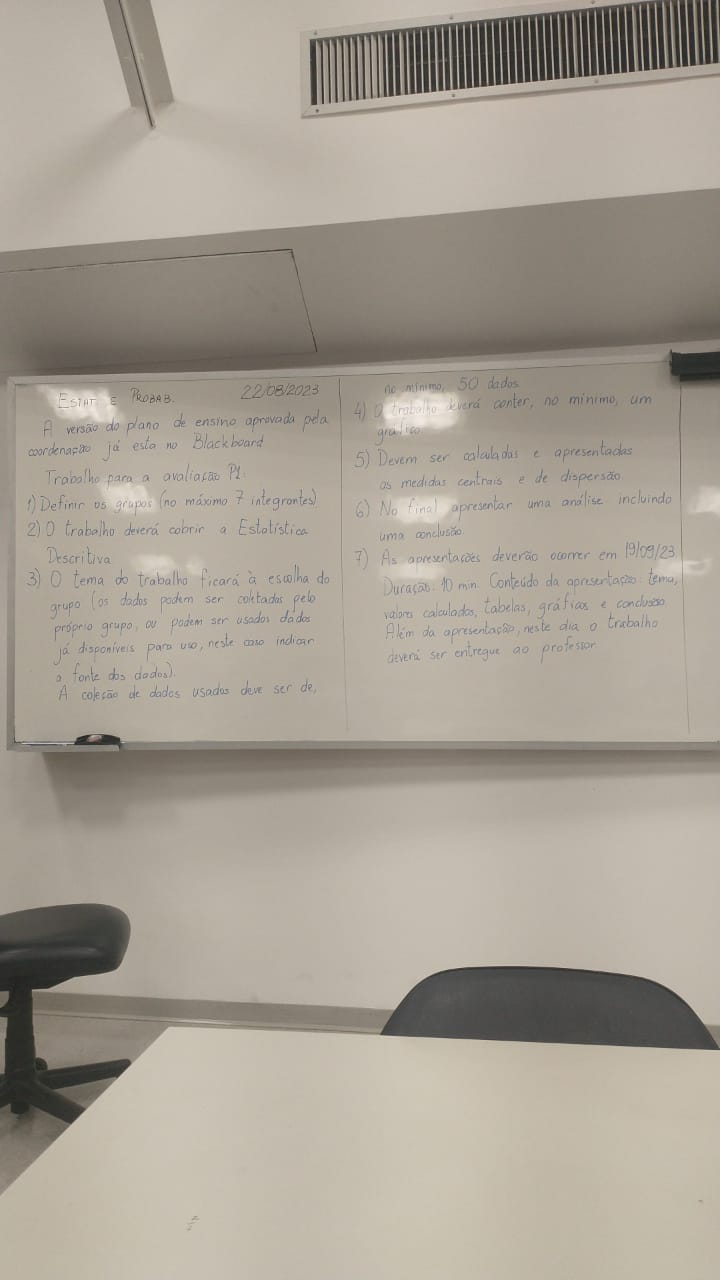 ESTAT E PROBAB. 22/08/2023
A versão do plano de ensino aprovada pela
coordenação já esta no Blackboard
Trabalho para a avaliação P1:
1) Definir os grupos (no máximo 7 integrantes)
2) O trabalho deverá cobrir a Estatística
Descritiva
3) O tema do trabalho ficará à escolha do
grupo (os dados podem ser coletados pelo
próprio grupo, ou podem ser usados dados
já disponíveis para uso, neste caso indicar
a fonte dos dados).
A coleção de dados usados deve ser de,
no mínimo, 50 dados
4) O trabalho deverá conter, no mínimo, um
gráfico.
5) Devem ser calculadas e apresentadas
as medidas centrais e de dispersão.
6) No final apresentar uma análise incluindo
uma conclusão.
7) As apresentações deverão ocorrer em 19/09/23
Duração: 10 min. Conteúdo da apresentação: tema,
valores calculados, tabelas, gráficos e conclusão.
Além da apresentação, neste dia o trabalho
deverá ser entregue ao professor.